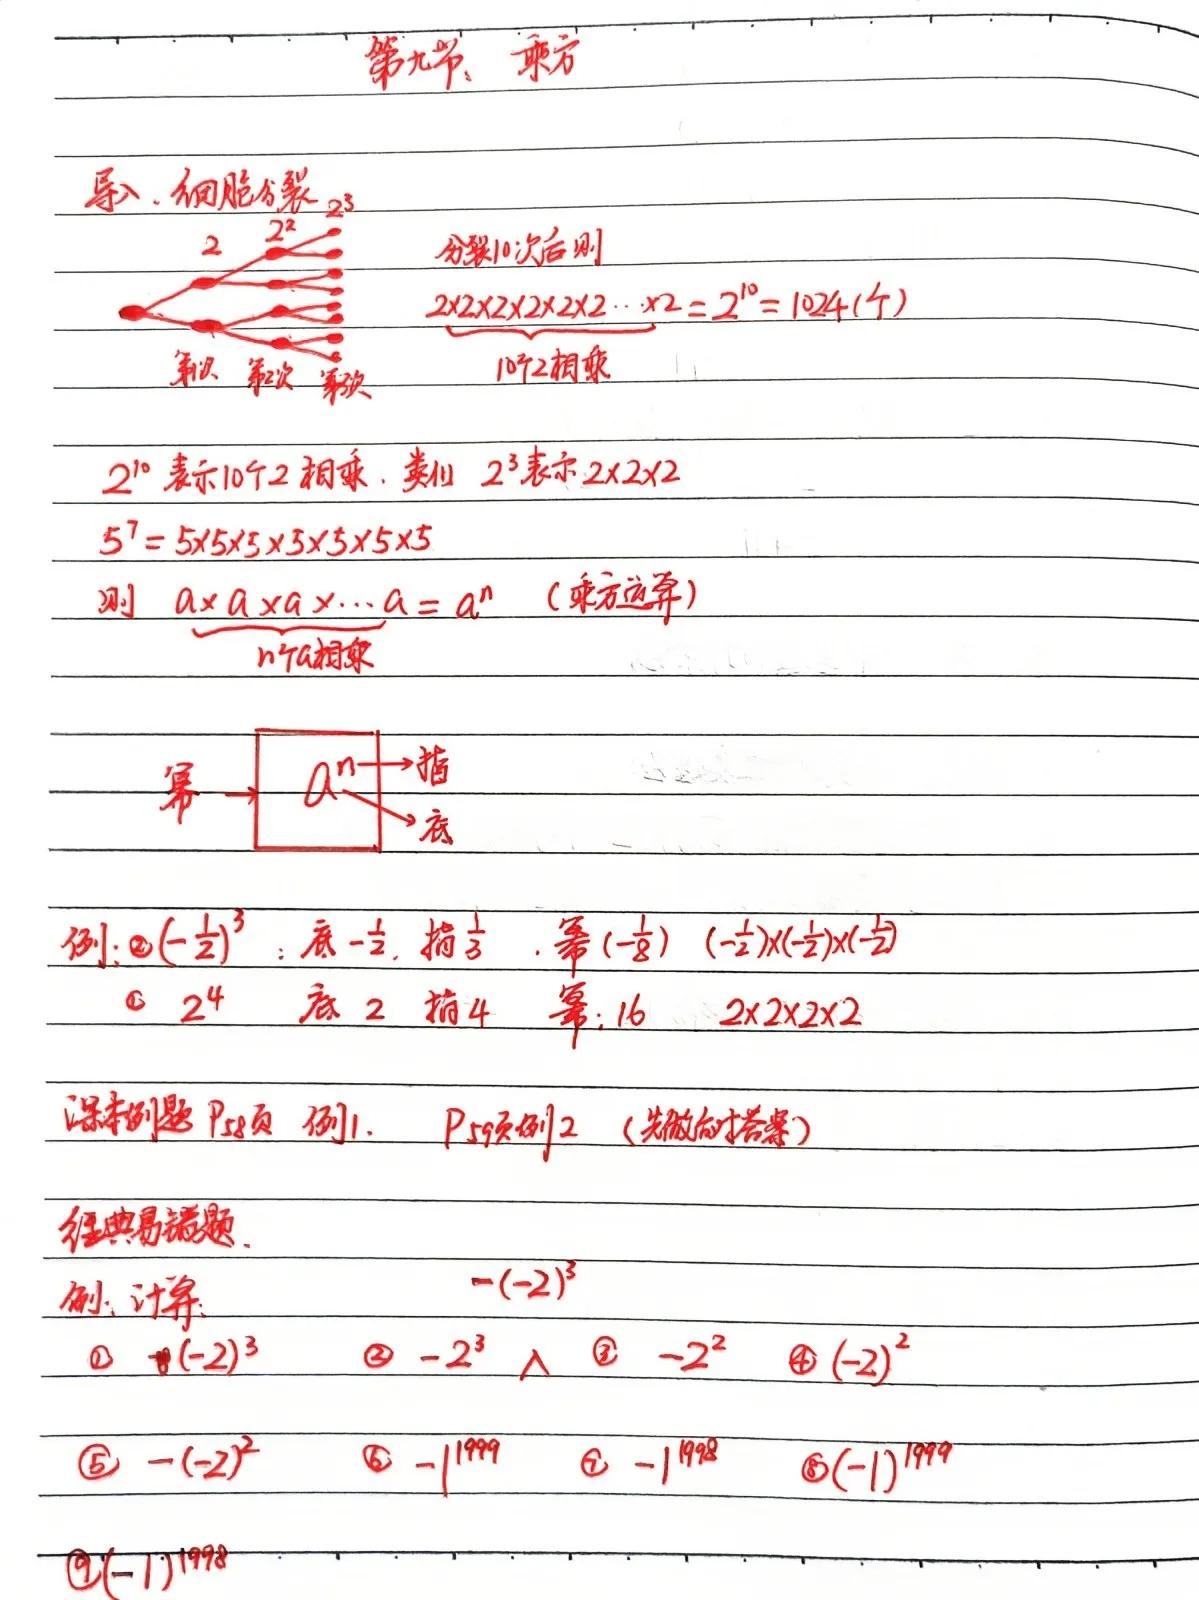 第九节、乘方
导入．细胞分裂
2 2² 2³
分裂10次后则
2×2×2×2×2×2…×2=2¹⁰=1024(个)
10个2相乘
第1次 第2次 第3次
2¹⁰表示10个2相乘．类似 2³表示2×2×2
5⁷=5×5×5×5×5×5×5
则 a×a×a×…a=aⁿ (乘方运算)
n个a相乘
幂 → aⁿ → 指
→ 底
例:②(-1/2)³ : 底-1/2. 指3 . 幂(-1/8) (-1/2)×(-1/2)×(-1/2)
① 2⁴ 底 2 指4 幂:16 2×2×2×2
课本例题 P58页 例1. P59页例2 (先做后对答案)
经典易错题.
例:计算: -(-2)³
① (-2)³ ② -2³ ∧ ③ -2² ④ (-2)²
⑤ -(-2)² ⑥ -1¹⁹⁹⁹ ⑦ -1¹⁹⁹⁸ ⑧(-1)¹⁹⁹⁹
⑨(-1)¹⁹⁹⁸